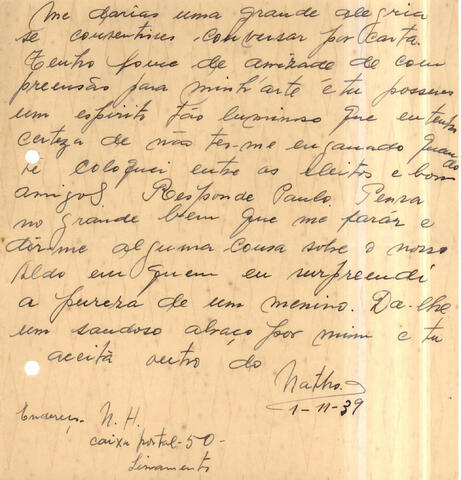 Me darias uma grande alegria
se consentisses conversar por carta.
Tenho fome de amizade de com
preensão para minh'arte e tu possues
um espirito tão luminoso que eu tenho
certeza de não ter-me enganado quando
te coloquei entre os eleitos e bons
amigos. Responde Paulo. Pensa
no grande bem que me farás e
dize-me alguma cousa sobre o nosso
Aldo em quem eu surpreendi
a pureza de um menino. Da-lhe
um saudoso abraço por mim e tu
aceita outro do
Natho.
1-11-39
Endereço N. H.
caixa postal-50-
Livramento